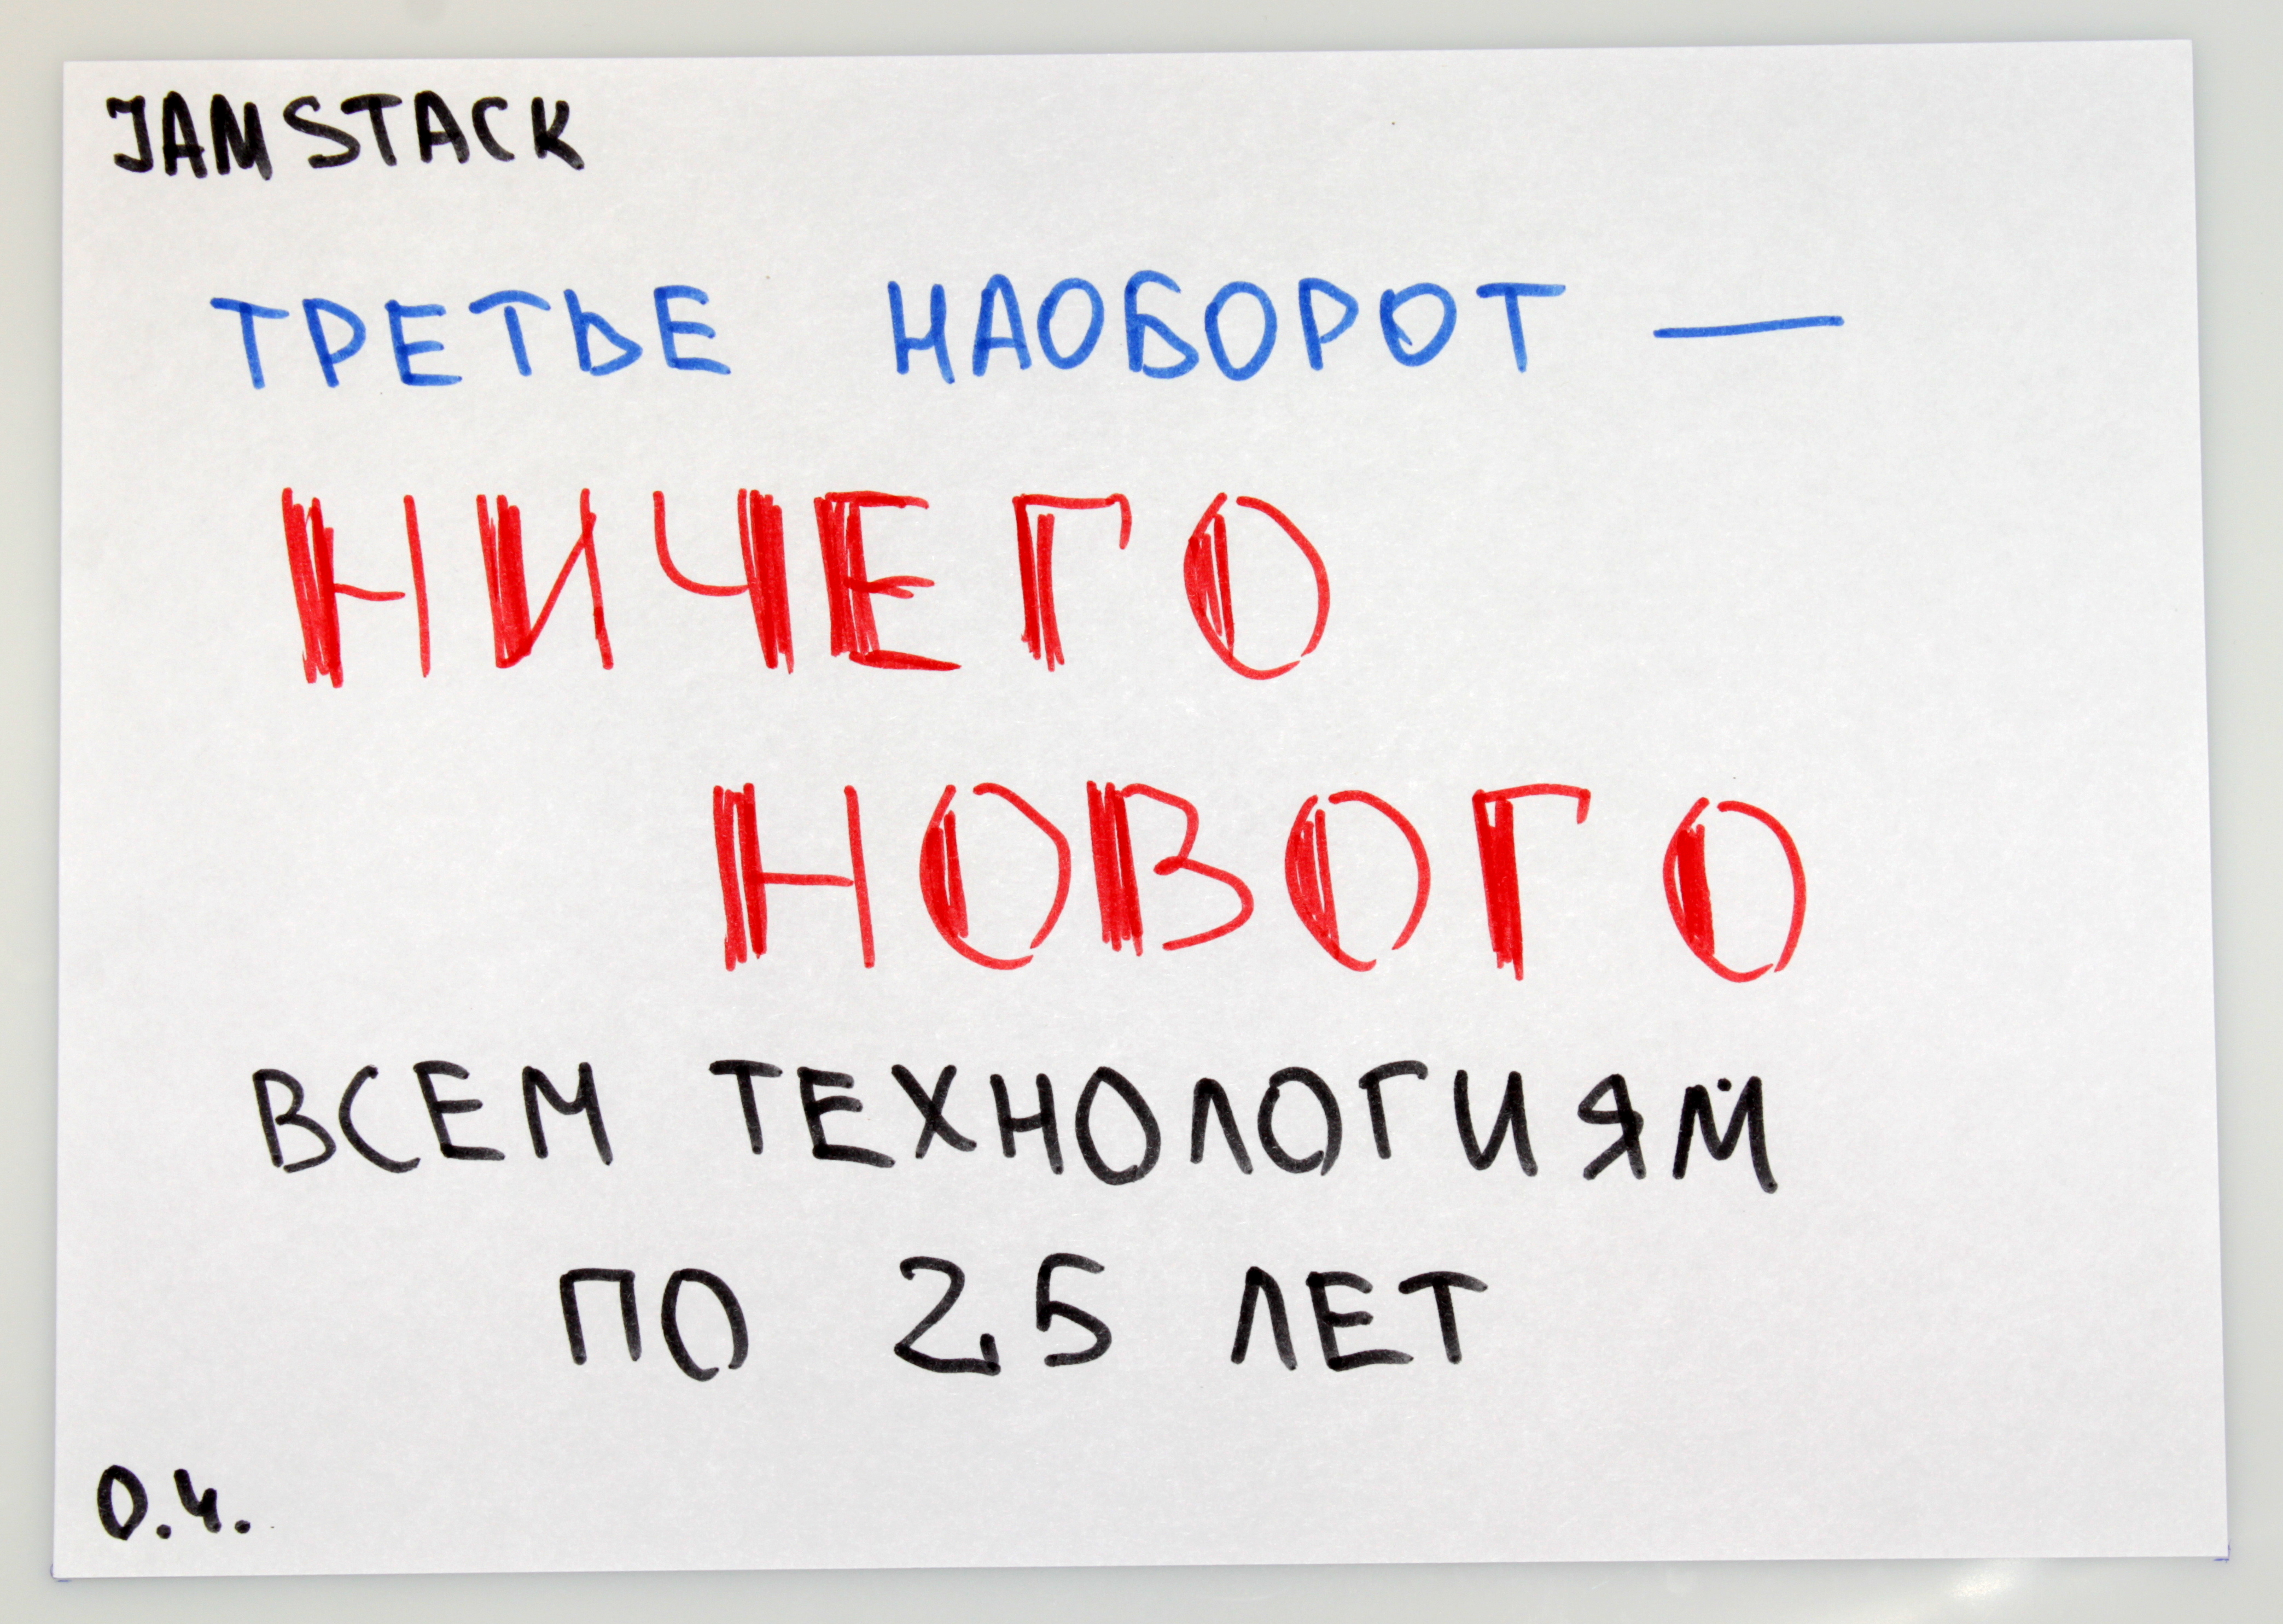 JAMSTACK
ТРЕТЬЕ НАОБОРОТ —
НИЧЕГО
НОВОГО
ВСЕМ ТЕХНОЛОГИЯМ
ПО 25 ЛЕТ
О.Ч.